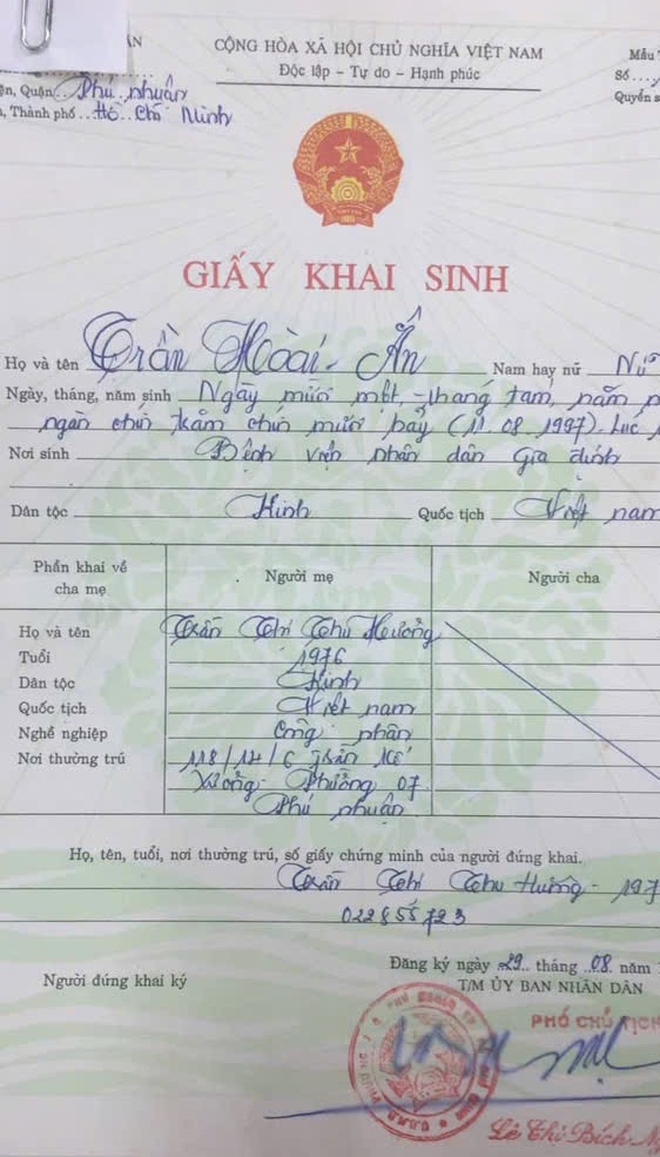 ÂN
CỘNG HÒA XÃ HỘI CHỦ NGHĨA VIỆT NAM
Độc lập – Tự do – Hạnh phúc
Mẫu
Số
Quyển s
ện, Quận.. Phú nhuận
, Thành phố .. Hồ Chí Minh
GIẤY KHAI SINH
Họ và tên Trần Hoài-Ấn Nam hay nữ Nữ
Ngày, tháng, năm sinh Ngày mười một, tháng tám, năm
ngàn chín trăm chín mươi bảy (11.08.1997). Lúc
Nơi sinh Bệnh viện nhân dân Gia định
Dân tộc Kinh Quốc tịch Việt nam
Phần khai về cha mẹ Người mẹ Người cha
Họ và tên Trần Thị Thu Hường
Tuổi 1976
Dân tộc Kinh
Quốc tịch Việt nam
Nghề nghiệp Công nhân
Nơi thường trú 118/14/6 Trần Kế
Xương - Phường 07
Phú nhuận
Họ, tên, tuổi, nơi thường trú, số giấy chứng minh của người đứng khai.
Trần Thị Thu Hường - 197
022855723
Đăng ký ngày 29 tháng 08 năm
Người đứng khai ký T/M ỦY BAN NHÂN DÂN
PHÓ CHỦ TỊCH
Lê Thị Bích